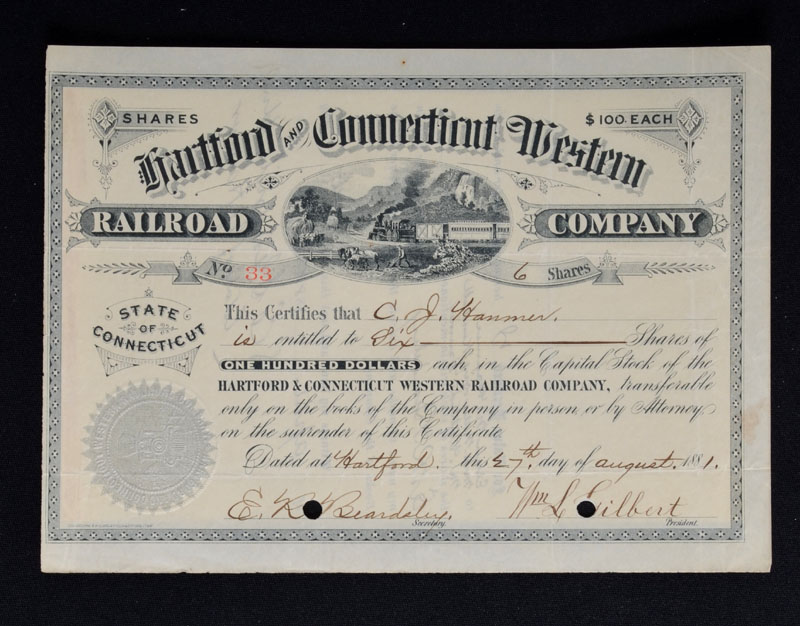 SHARES $100 EACH
Hartford AND Connecticut Western
RAILROAD COMPANY
No 33 6 Shares
STATE OF CONNECTICUT
This Certifies that C. J. Hanmer.
is entitled to Six Shares of
ONE HUNDRED DOLLARS each, in the Capital Stock of the
HARTFORD & CONNECTICUT WESTERN RAILROAD COMPANY, transferable
only on the books of the Company in person or by Attorney
on the surrender of this Certificate
Dated at Hartford. this 27th, day of august, 1881.
E. R. Beardsley, Wm L Gilbert
Secretary. President.